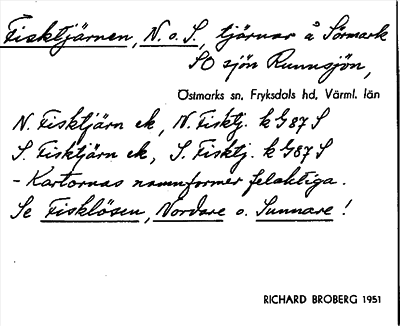 Fisktjärnen, N. o. S., tjärnar å Sörmark
SO sjön Runnsjön,
Östmarks sn, Fryksdals hd, Värml. län
N. Fisktjärn ek, N. Fisktj. k G87 S
S. Fisktjärn ek, S. Fisktj. k G87 S
- Kartornas namnformer felaktiga.
Se Fisklösen, Nordare o. Sunnare !
RICHARD BROBERG 1951